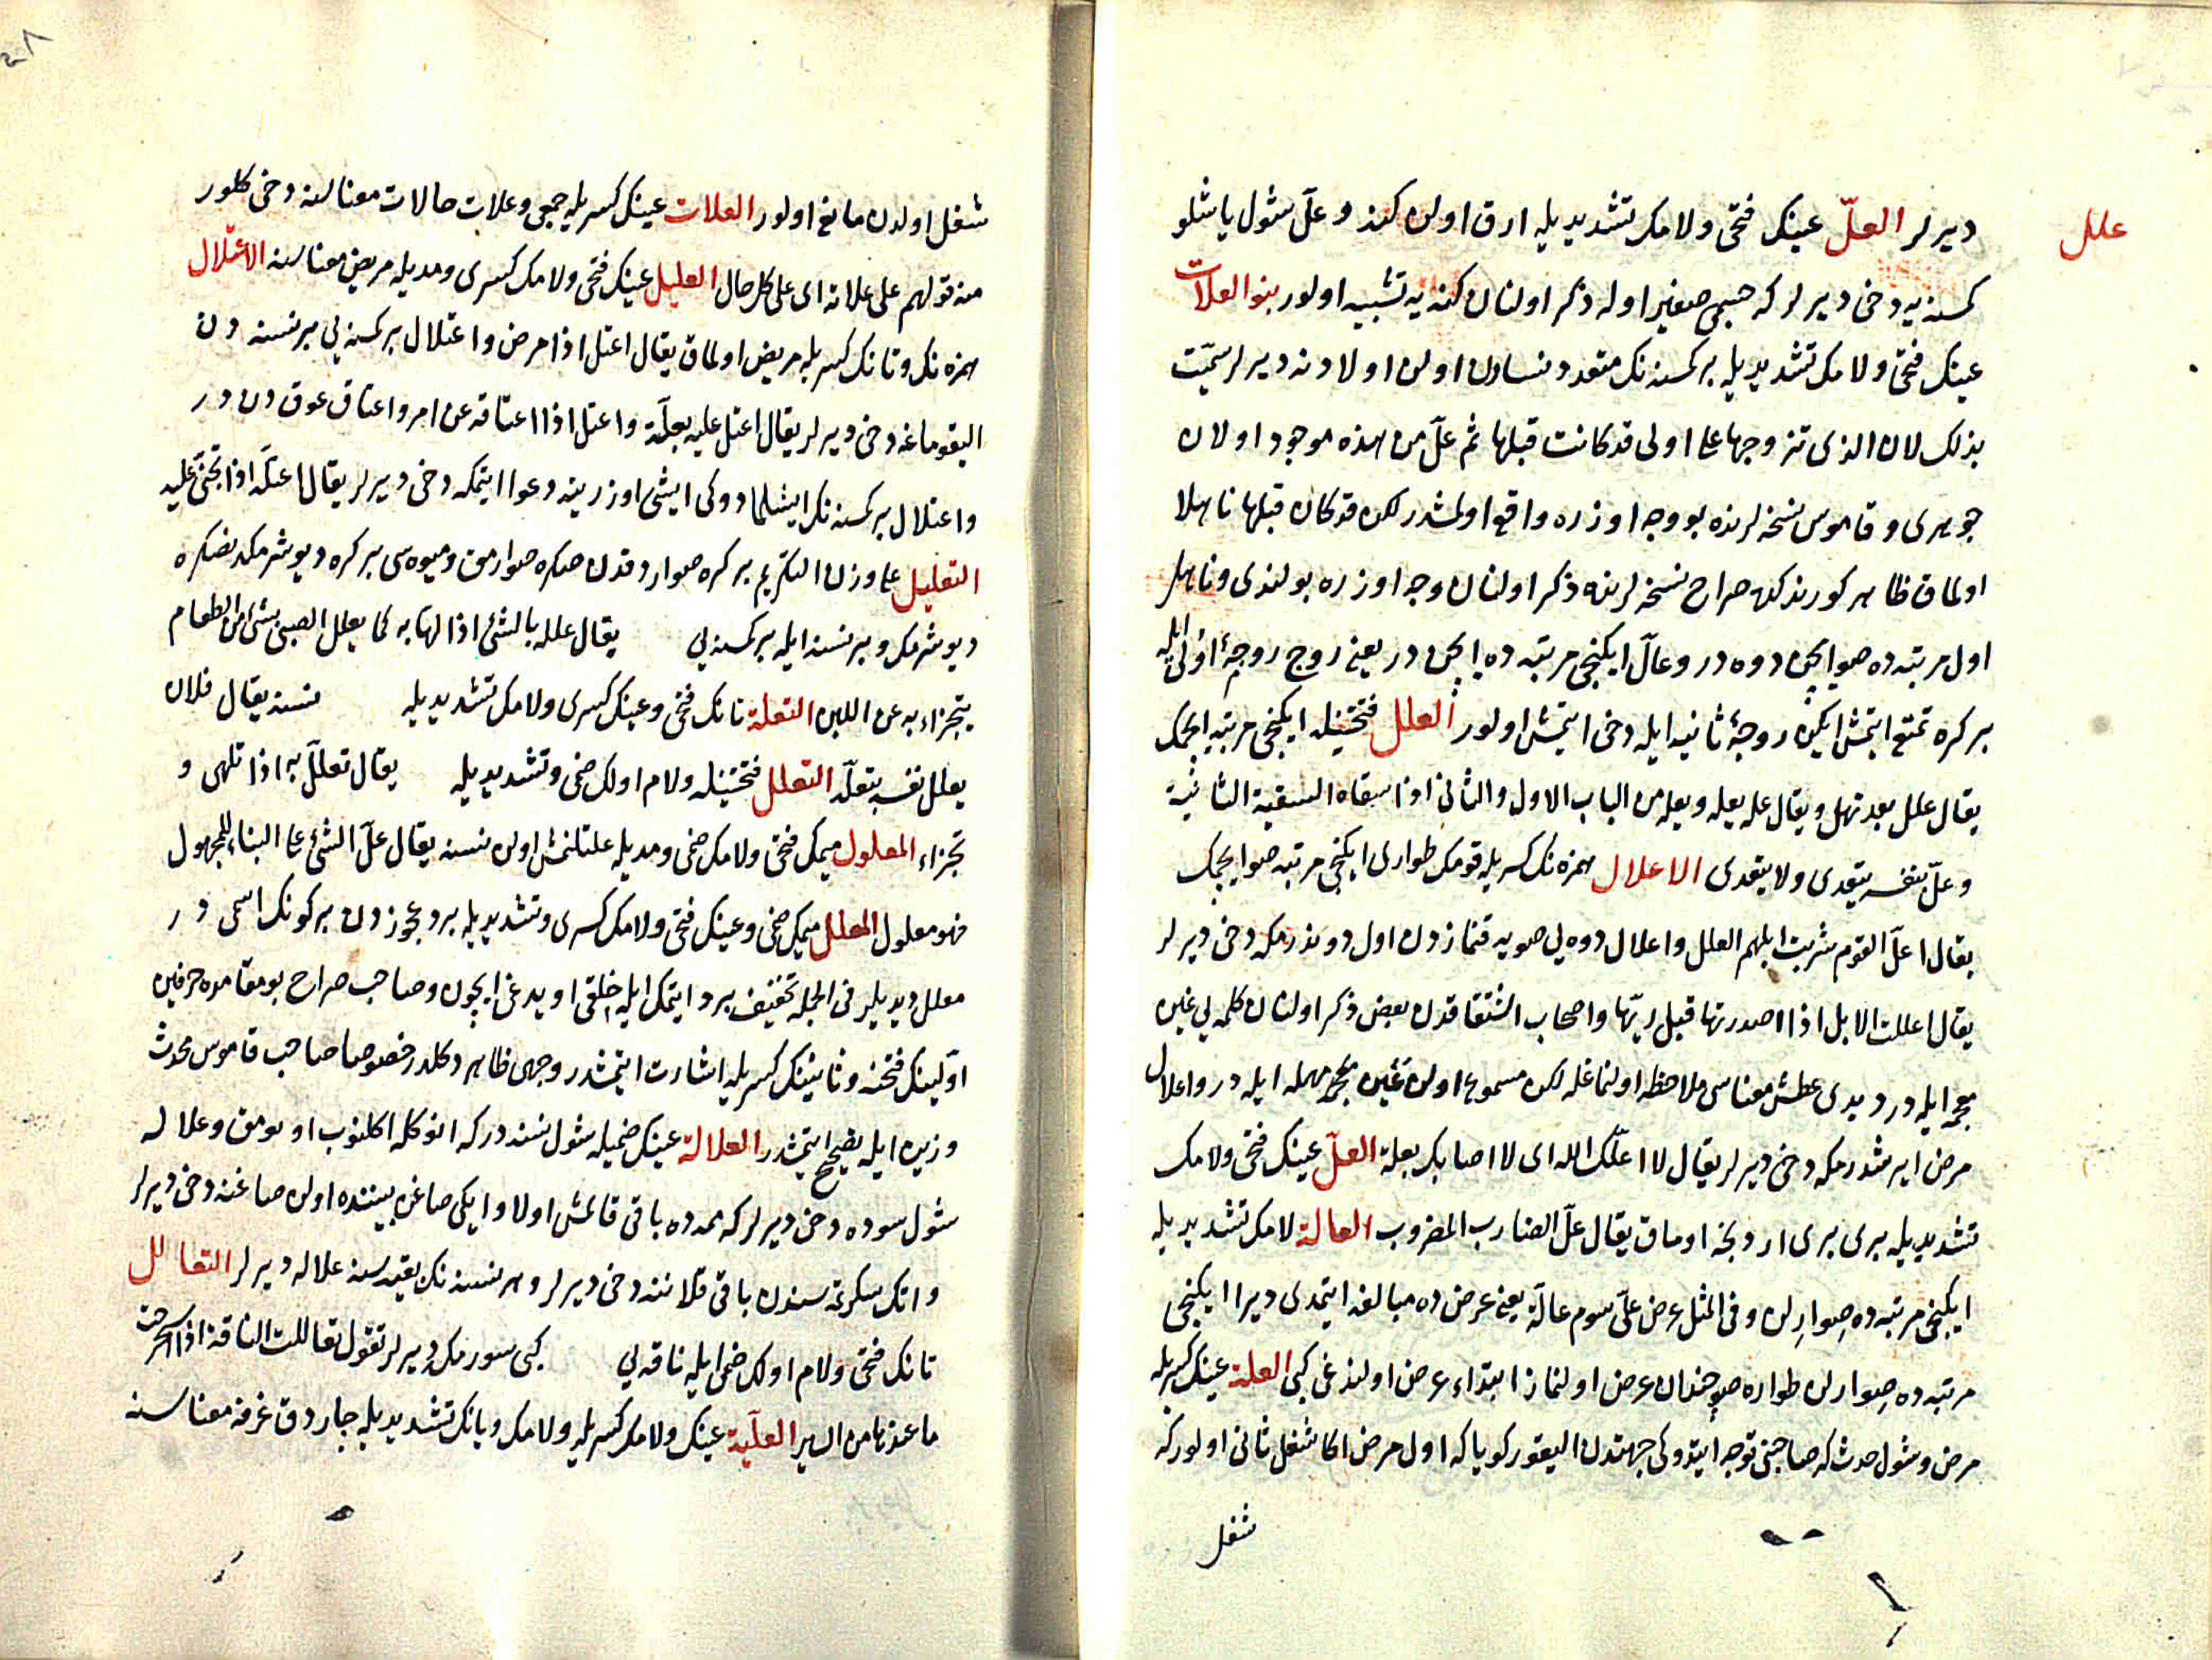 علل
ديرلر العلّ عينك فتحى ولامك تشديديله ارق اولن كنه وعلّ شول ياشلو
كسنه يه دخى ديرلر كه جسمى صغير اوله ذكر اولنان كنه يه تشبيه اولور بنو العلات
عينك فتحى ولامك تشديديله بر كسنه نك متعدد نسادن اولن اولادنه ديرلر سمّيت
بذلك لان الذى تزوجها على اولى قد كانت قبلها ثم علّ من هذه موجود اولان
جوهرى وقاموس نسخه لرنده بو وجه اوزره واقع اولمشدر لكن قد كان قبلها ناهلا
اولماق ظاهر كورينور كه صراح نسخه لرنده ذكر اولنان وجه اوزره بولندى وناهل
اول مرتبه ده صو ايچن دوه در وعالّ ايكنجى مرتبه ده ايچن در يعنى زوج زوجهٔ اولى ايله
بر كره تمتع ايتمش ايكن زوجهٔ ثانيه ايله دخى ايتمش اولور العلل فتحتينله ايكنجى مرتبه ايچمك
يقال علل بعد نهل ويقال عله يعله ويعله من الباب الاول والثانى اذا سقاه السقية الثانية
وعلّ بنفسه يتعدى ولا يتعدى الاعلال همزه نك كسريله قومك طوارى ايكنجى مرتبه صو ايچمك
يقال اعلّ القوم شربت ابلهم العلل واعلال دوه لى صويه قنمازدن اول دوندرمكه دخى ديرلر
يقال اعللت الابل اذا اصدرتها قبل ريّها واصحاب اشتقاقدن بعض ذكر اولنان كلمه لى غين
معجمه ايله در ديدى عطش معناسى ملاحظه اولنماغله لكن مسموع اولن عين مهمله ايله در واعلال
مرض ايرشدرمكه دخى ديرلر يقال لا اعلّك الله اى لا اصابك بعلة العلّ عينك فتحى ولامك
تشديديله برى برى اردنجه اورماق يقال علّ الضارب المضروب العالة لامك تشديديله
ايكنجى مرتبه ده صوارلن وفى المثل عرض علىّ سوم عالّة يعنى عرض ده مبالغه ايتمدى ديرا ايكنجى
مرتبه ده صوارلن طواره صو چندان عرض اولنماز ابتداء عرض اولندغى كبى العلة عينك كسريله
مرض وشول حدث كه صاحبنى توجه ايتدوكى جهتدن اليقور كويا كه اول مرض اكا شغل ثانى اولور كه
شغل
شغل اولدن مانع اولور العلات عينك كسريله جمعى وعلات حالات معناسنه دخى كلور
منه قولهم على علاته اى على كل حال العليل عينك فتحى ولامك كسرى ومديله مريض معناسنه الاعتلال
همزه نك وتانك كسريله مريض اولماق يقال اعتل اذا مرض واعتلال بر كسنه يى بر نسنه دن
اليقوماغه دخى ديرلر يقال اعتل عليه بعلّة واعتل اذا اعتاقه عن امر واعتاق عوق دن در
واعتلال بر كسنه نك ايشلمادوكى ايشى اوزرينه دعوا ايتمكه دخى ديرلر يقال اعتلّه اذا تجنّى عليه
التعليل على وزن التكريم بر كره صوارد قدن صكره صوارمق وميوه سى بر كره ديوشرمكدنصكره
ديوشرمك وبر نسنه ايله بر كسنه يى يقال علله بالشئ اذا لهاه به كما يعلل الصبى بشئ من الطعام
يتجزاء به عن اللبن التعلة تانك فتحى وعينك كسرى ولامك تشديديله نسنه يقال فلان
يعلل نفسه بتعلّة التعلل فتحتينله ولام اولك ضمى وتشديديله يقال تعلّل به اذا تلهى و
تجزاء المعلول ميمك فتحى ولامك ضمى ومديله علتلنمش اولن نسنه يقال علّ الشئ على البناء للمجهول
فهو معلول المعلل ميمك ضمى وعينك فتحى ولامك كسرى وتشديديله برد عجوزدن بر كونك اسمى در
معلل ديديلر فى الجمله تخفيف برد ايتمك ايله خلقى اويدغى ايچون وصاحب صراح بو مقامده حرفين
اوّلينك فتحنه وثانينك كسريله اشارت ايتمشدر وجهى ظاهر دكلدر خصوصا صاحب قاموس محدث
وزنى ايله تصحيح ايتمشدر العلالة عينك ضميله شول نسنه در كه انوكله اكلنوب اويومق وعلاله
شول سوده دخى ديرلر كه ممه ده باقى قالمش اولا وايكى صاغن بيننده اولن صاغنه دخى ديرلر
واتك سكرتمه سندن باقى قلاننه دخى ديرلر وهر نسنه نك بقيه سنه علاله ديرلر التعالل
تانك فتحى ولام اولك ضمى ايله ناقه يى كبى سورمك ديرلر تقول تعاللت الناقة اذا استخرجت
ما عندها من السير العلّية عينك ولامك كسريله ولامك ويانك تشديديله چارداق غرفه معناسنه